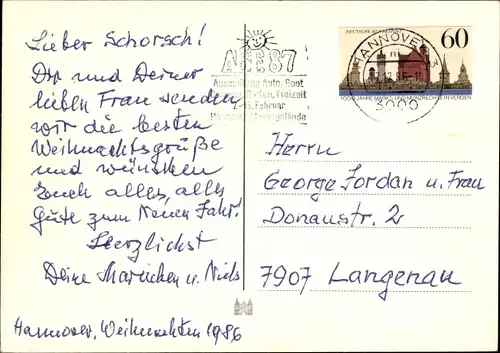 Lieber Schorsch!
Dir und Deiner
lieben Frau senden
wir die besten
Weihnachtsgrüße
und wünschen
Euch alles, alles
Gute zum Neuen Jahr!
Herzlichst
Deine Mariechen u. Niels
Hannover, Weihnachten 1986
87
Ausstellung Auto, Boot
Freizeit
Februar
HANNOVER
3000
60
1000 JAHRE MARKT- UND MÜNZRECHTE IN VERDEN
Herrn
George Jordan u. Frau
Donaustr. 2
7907 Langenau